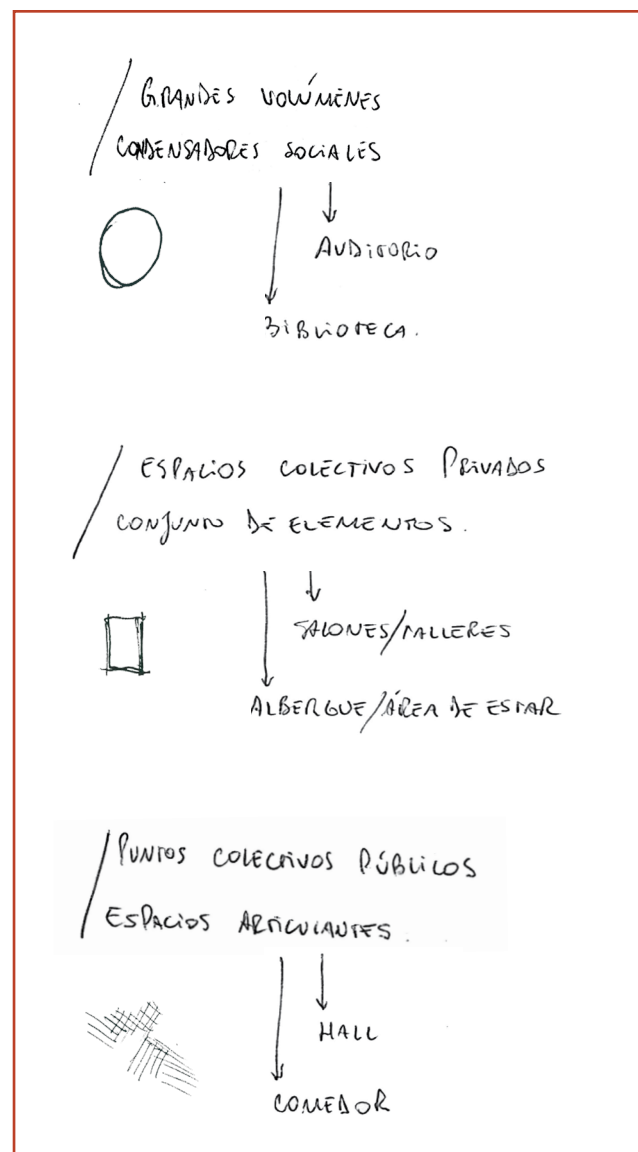 GRANDES VOLÚMENES
CONDENSADORES SOCIALES
AUDITORIO
BIBLIOTECA.
ESPACIOS COLECTIVOS PRIVADOS
CONJUNTO DE ELEMENTOS.
SALONES/TALLERES
ALBERGUE/ÁREA DE ESTAR
PUNTOS COLECTIVOS PÚBLICOS
ESPACIOS ARTICULANTES.
HALL
COMEDOR